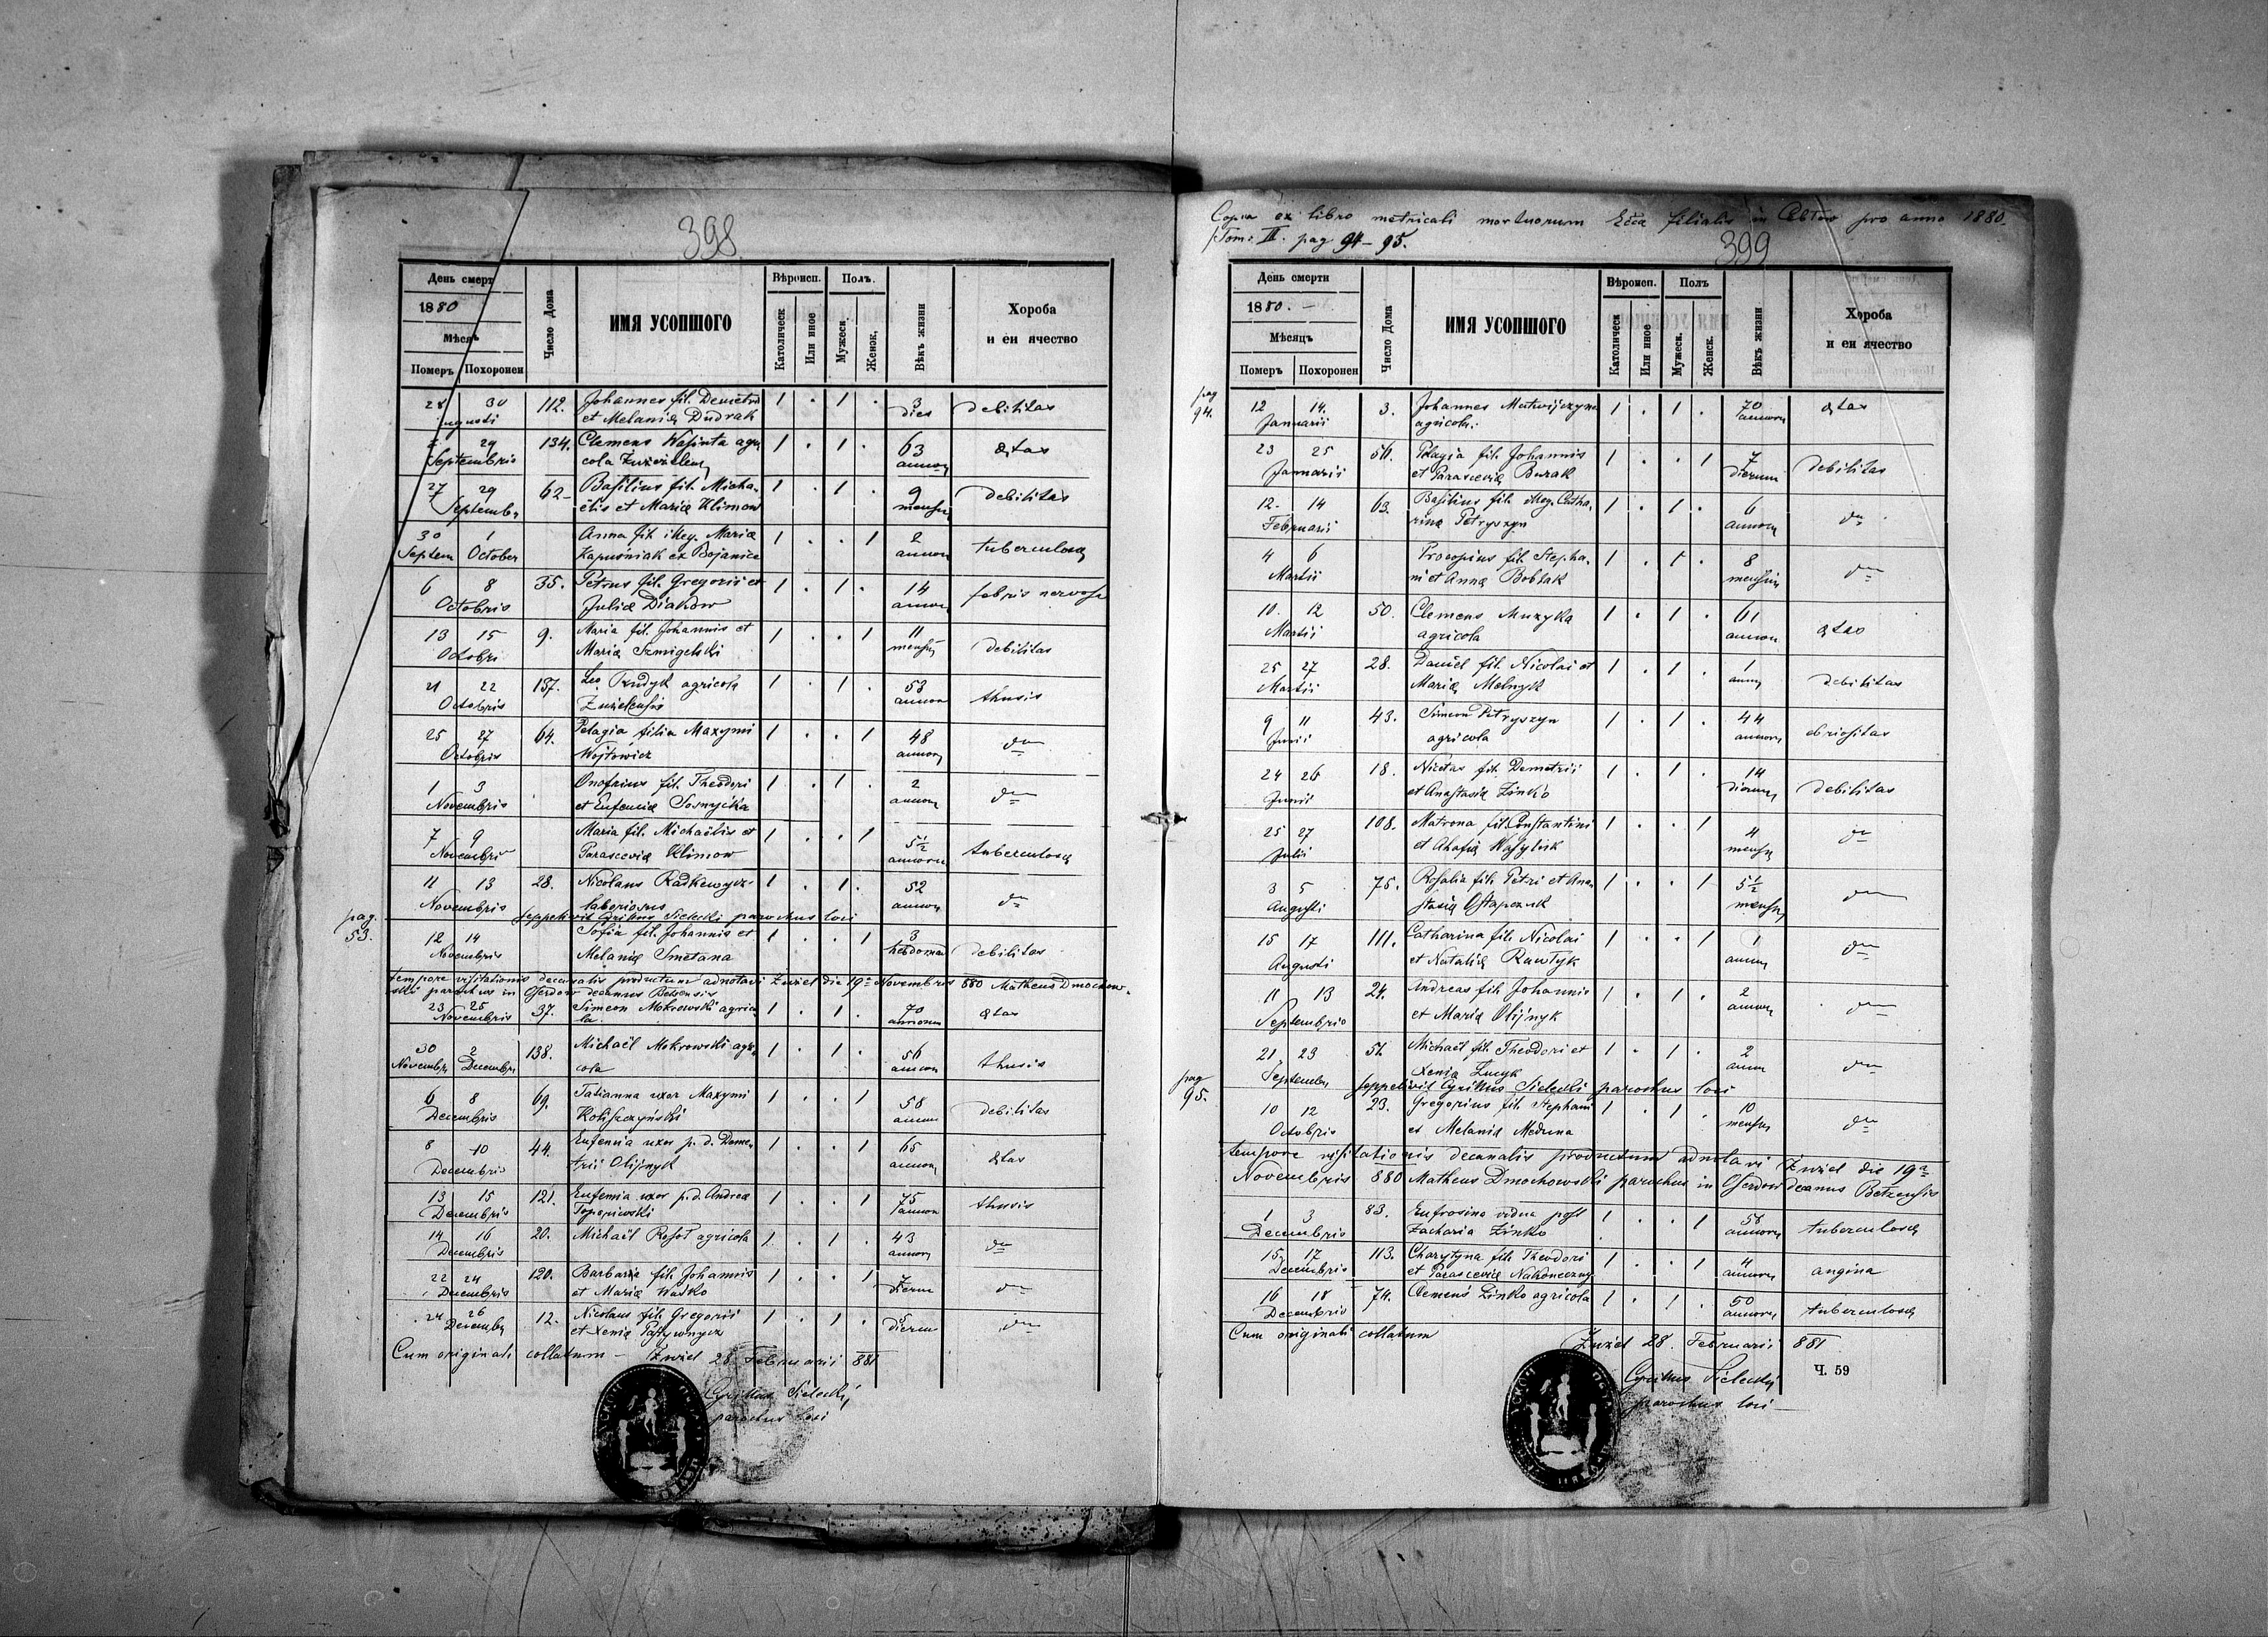 398
День смерт
1880
Мѣсяъ
Померъ Похоронен
Число Дома
ИМЯ УСОПШОГО
Вѣроисп.
Католическ
Или иное
Полъ.
Мужеск.
Женск.
Вѣкъ жизни
Хороба
и еи ячество
28 30 112. Johannes fil. Demetrii 1 . 1 . 3 debilitas
et Melaniæ Dudrak dies
29 134. Clemens agri 1 . 1 . 63 ætas
Septembris cola annor
27 29 62 Basilius fil. Micha 1 . 1 . 9 debilitas
Septembr elis et Mariæ Klimow mensu
30 1 Anna fil. illeg. Mariæ 1 . . 1 2 tuberculosa
Septem October Kapuśniak ex Bojanice annor
6 8 35. Petrus fil. Gregorii et 1 . 1 . 14 febris nervosa
Octobris Juliæ Diakow annor
13 15 9. Maria fil. Johannis et 1 . . 1 11 debilitas
Octobri Mariæ Szmigelski mensu
21 22 137. Leo Prudyk agricola 1 . 1 . 53 thusis
Octobris annor
25 27 64. Pelagia filia Maxymi 1 . . 1 48 dto
Octobris Wojtowicz annor
1 3 Onofrius fil. Theodori 1 . 1 . 2 dto
Novembris et Eufemiæ annor
7 9 Maria fil. Michaëlis et 1 . . 1 5½ tuberculosa
Novembris Parasceviæ Klimow annoru
11 13 28. Nicolaus Radkewycz 1 . 1 . 52 dto
Novembris laboriosus annor
pag. 53.
seppelivit Cyrillus Sielecki parochus loci
12 14 Sofia fil. Johannis et 1 . . 1 3 debilitas
Novembris Melaniæ Smetana hebdomar
tempore visitationis decanalis productum adnotavi Żużel die 19ª Novembris 880 Matheus Dmochow-
ski parochus in Oserdow decanus Belzensis
23 25 37. Simeon Mokrowski agrico 1 . 1 . 70 ætas
Novembris la. annorum
30 2 138. Michaël Mokrowski agri 1 . 1 . 56 thusis
Novembr Decembr cola annor
6 8 69. Tatianna uxor Maxymi 1 . . 1 58 debilitas
Decembris annor
8 10 44. Eufemia uxor p. d. Deme 1 . . 1 65 ætas
Decembris trii Olijnyk annor
13 15 121. Eufemia uxor p. d. Andreæ 1 . . 1 75 thusis
Decembris annor
14 16 20. Michaël Rosoł agricola 1 . 1 . 43 dto
Decembris annor
22 24 120. Barbara fil. Johannis 1 . . 1 7 dto
Decembris et Mariæ Waśko dierum
24 26 12. Nicolaus fil. Gregorii 1 . 1 . dto
Decembr et Xeniæ dierum
Cum originali collatum – Żużel 28 Februarii 881
Cyrillus Sielecki
parochus loci
Copia ex libro metricali mortuorum Ecca filialis in pro anno 1880.
Tom: II. pag 94 – 95.
399
День смерти
1880. –
Мѣсяцъ
Померъ Похоронен
Число Дома
ИМЯ УСОПШОГО
Вѣроисп.
Католическ
Или иное
Полъ
Мужеск.
Женск.
Вѣкъ жизни
Хороба
и еи ячество
pag 94.
12 14. 3. Johannes Matwijczyn 1 . 1 . 70 ætas
Januarii agricola. annoru
23 25 56. Pelagia fil. Johannis 1 . . 1 7 debilitas
Januarii et Parasceviæ Burak dierum
12. 14 63. Basilius fil. illeg. Catha 1 . 1 . 6 dto
Februarii rinæ Petryszyn annor
4 6 Procopius fil. Stepha 1 . 1 . 8 dto
Martii ni et Annæ Bobłak mensiu
10. 12 50. Clemens Muzyka 1 . 1 . 61 ætas
Martii agricola annor
25 27 28. Daniel fil. Nicolai et 1 . 1 . 1 debilitas
Martii Mariæ Melnyk anni
9 11 43. Simeon Petryszyn 1 . 1 . 44 ebriositas
Junii agricola annoru
24 26 18. Nicetas fil. Demetrii 1 . 1 . 14 debilitas
Junii et Anastasiæ Zinko dierum
25 27 108. Matrona fil. Constantini 1 . . 1 4 dto
Julii et Ahafiæ Wasyluk mensu
3 5 75. Rosalia fil. Petri et Ana 1 . . 1 5½ dto
Augusti stasiæ Ostapczuk mensu
15 17 111. Catharina fil. Nicolai 1 . . 1 1 dto
Augusti et Nataliæ Rawłyk annor
11 13 24. Andreas fil. Johannis 1 . 1 . 2 dto
Septembris et Mariæ Olijnyk annor
21 23 51. Michaël fil. Theodori et 1 . 1 . 2 dto
Septembr Xeniæ annor
pag 95.
seppelivit Cyrillus Sielecki parochus loci
10 12 23. Gregorius fil. Stephani 1 . 1 . 10 dto
Octobris et Melaniæ Meduna mensu
tempore visitationis decanalis productum adnotavi Żużel die 19ª
Novembris 880 Matheus Dmochowski parochus in Oserdow decanus Belzensis
1 3 83. Eufrosina vidua post 1 . . 1 58 tuberculosa
Decembris Zacharia Zinko annoru
15 17 113. Charytyna fil. Theodori 1 . . 1 4 angina
Decembris et Parasceviæ Nakoneczny annoru
16 18 74. Clemens Zinko agricola 1 . 1 . 50 tuberculosa
Decembris annoru
Cum originali collatum
Żużel 28. Februarii 881
Ч. 59
Cyrillus Sielecki
parochus loci –